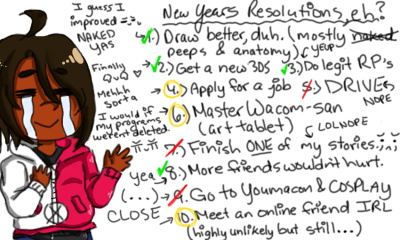 I guess I
improved =;=.
NAKED
YAS
Finally
QuQ ♡
Mehhh
Sorta
I would if
my programs
weren't deleted.
yea
(...)
CLOSE
New Years Resolutions, eh?
1.) Draw better, duh. (mostly naked
peeps & anatomy) YUP
2.) Get a new 3DS 3.) Do legit RP's
4.) Apply for a job 5.) DRIVE
NOPE
6.) Master Wacom-san
(art tablet) LOLNOPE
7.) Finish ONE of my stories.
8.) More friends wouldn't hurt.
9.) Go to Youmacon & COSPLAY
10.) Meet an online friend IRL
(highly unlikely but still...)